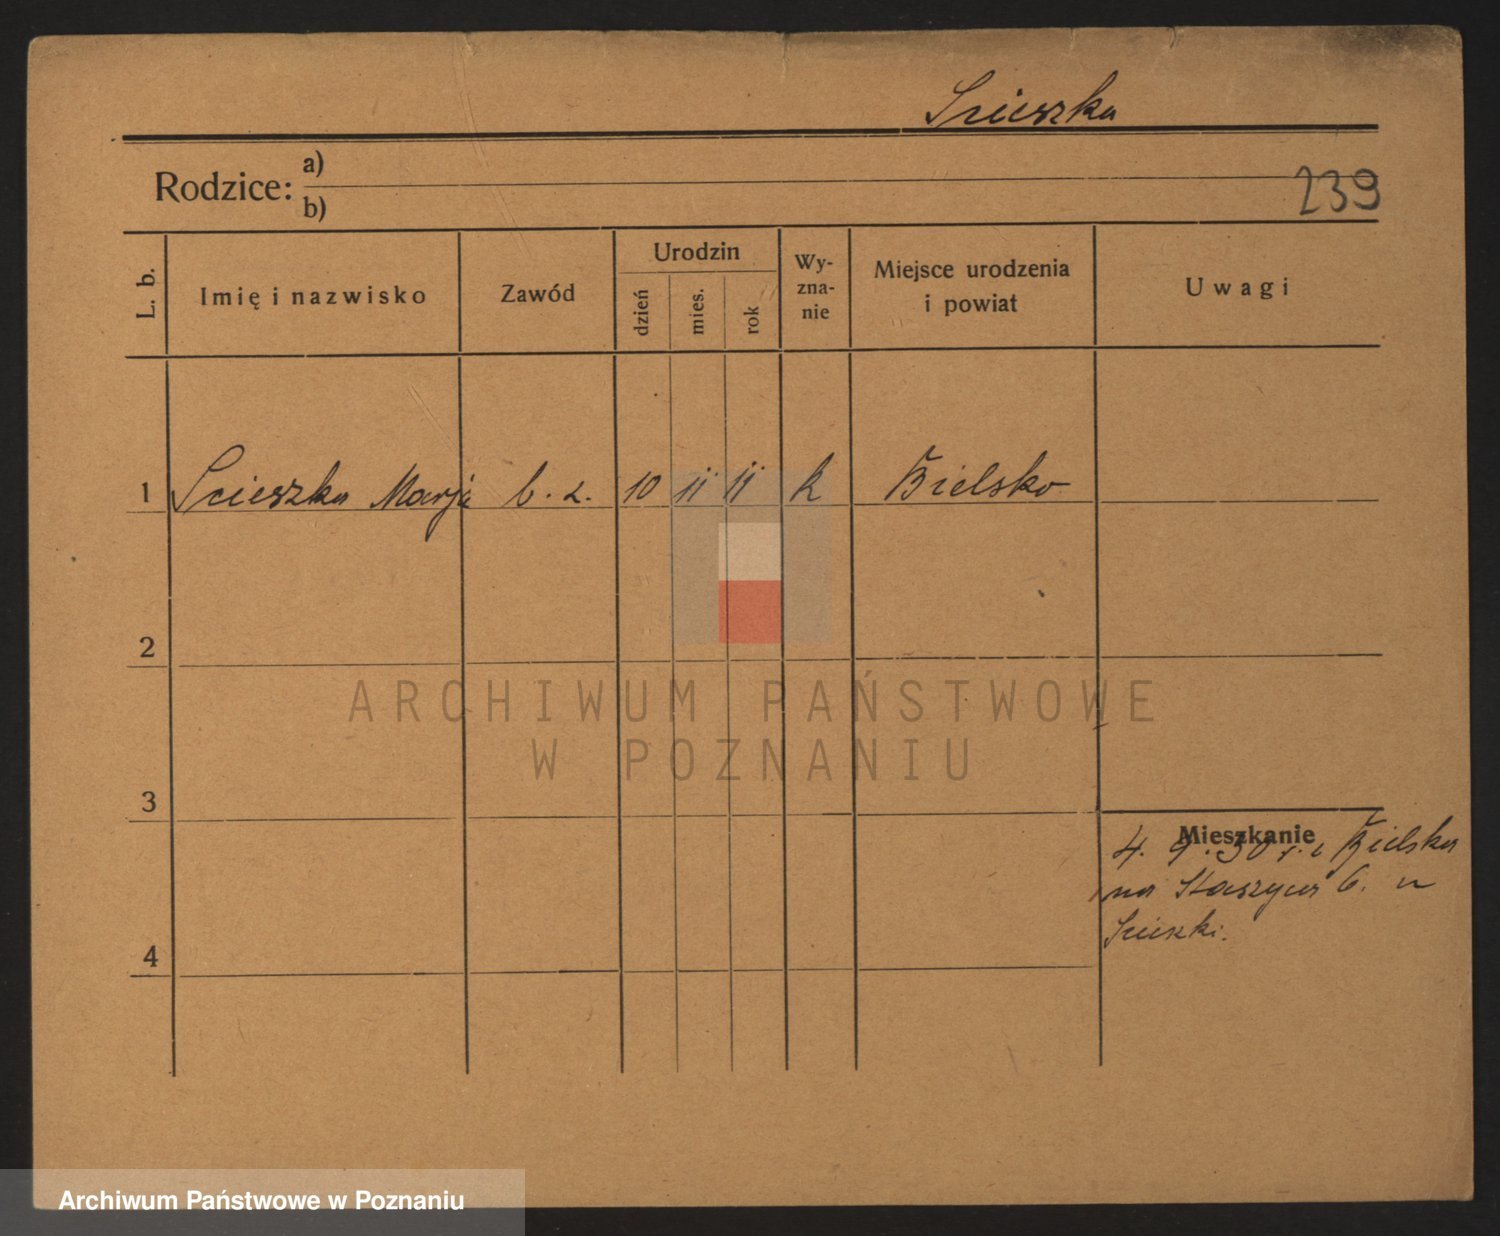 Scieszka
Rodzice: a)
b)
239
L. b.
Imię i nazwisko
Zawód
Urodzin
dzień
mies.
rok
Wy-
zna-
nie
Miejsce urodzenia
i powiat
Uwagi
1 Scieszka Marja b. z. 10 11 11 k Bielsko
2
ARCHIWUM PAŃSTWOWE
W POZNANIU
3
Mieszkanie
4. 9. 30 r. z Bielska
na Staszyca 6. u
Scieszki.
4
Archiwum Państwowe w Poznaniu